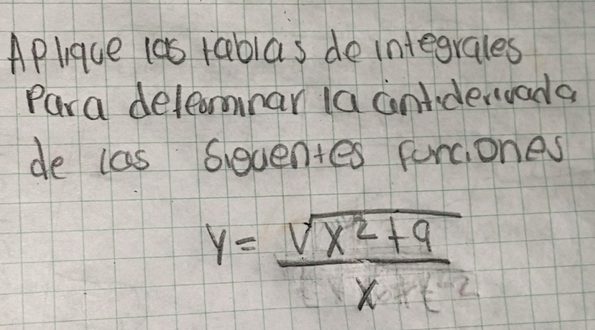 Aplique las tablas de integrales
Para determinar la antiderivada
de las siguentes funciones
y = √(x² + 9) / x